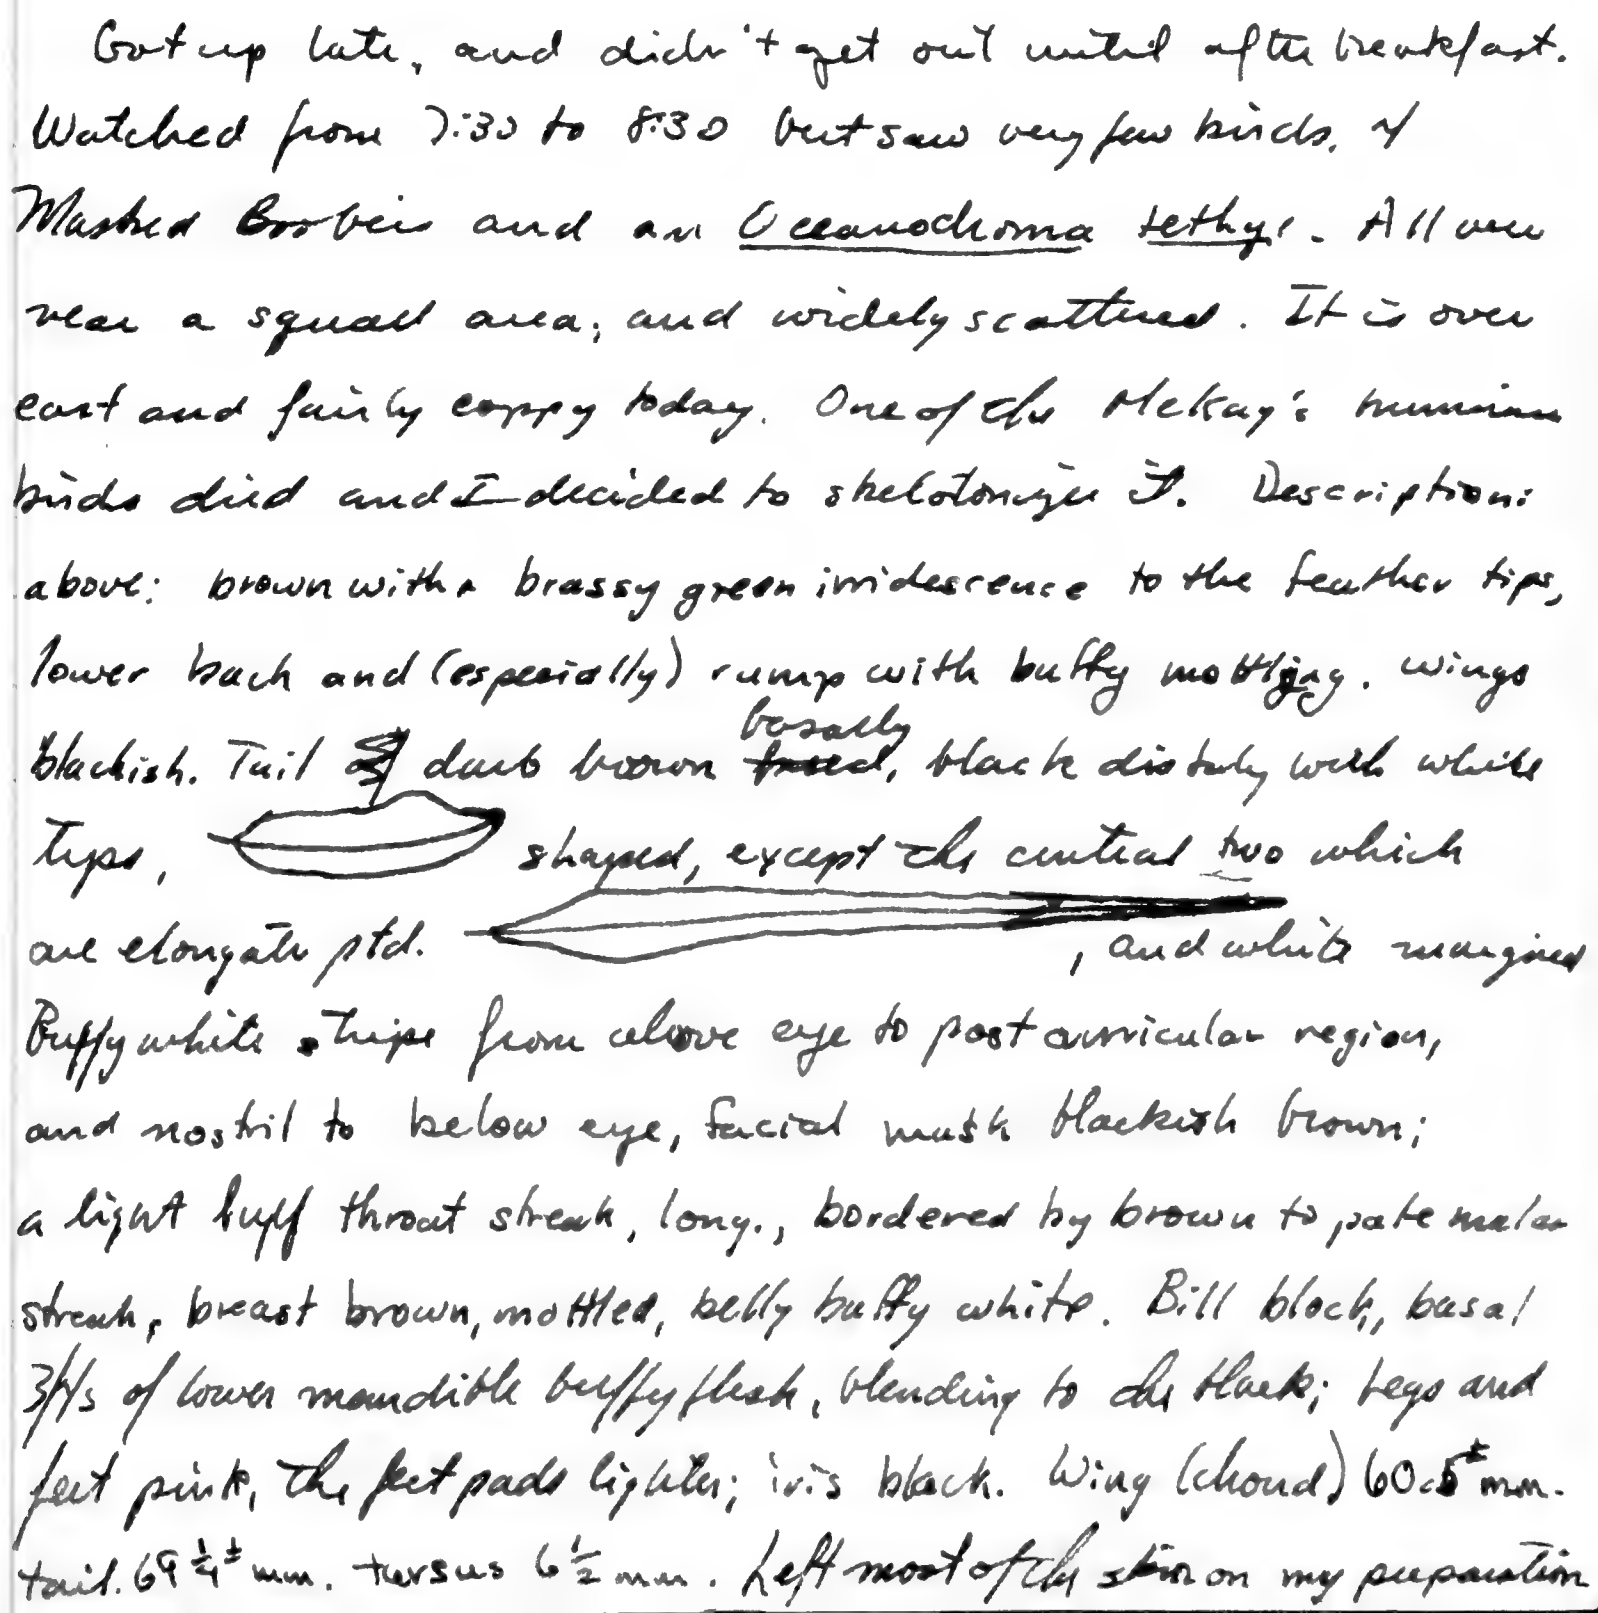 Got up late, and didn't get out until after breakfast.
Watched from 7:30 to 8:30 but saw very few birds. 4
Masked Boobies and an Oceanodroma tethys. All were
near a squall area, and widely scattered. It is over
cast and fairly coppy today. One of the McKay's humming
birds died and I decided to skelotonize it. Description:
above: brown with a brassy green irridescence to the feather tips,
lower back and (especially) rump with buffy mottling. wings
blackish. Tail dark brown basally, black distaly with white
tips, shaped, except the central two which
are elongate ptd. , and white margined
Buffy white stripe from above eye to post aurricular region,
and nostril to below eye, facial mask blackish brown;
a light buff throat streak, long., bordered by brown to pale malar
streak, breast brown, mottled, belly buffy white. Bill black, basal
of lower mandible buffy flesh, blending to the black; Legs and
feet pink, the feet pads lighter; iris black. Wing (chord) 60.5± mm.
tail. 69 1/4± mm. tarsus 6 1/2 mm. Left most of the skin on my preparation